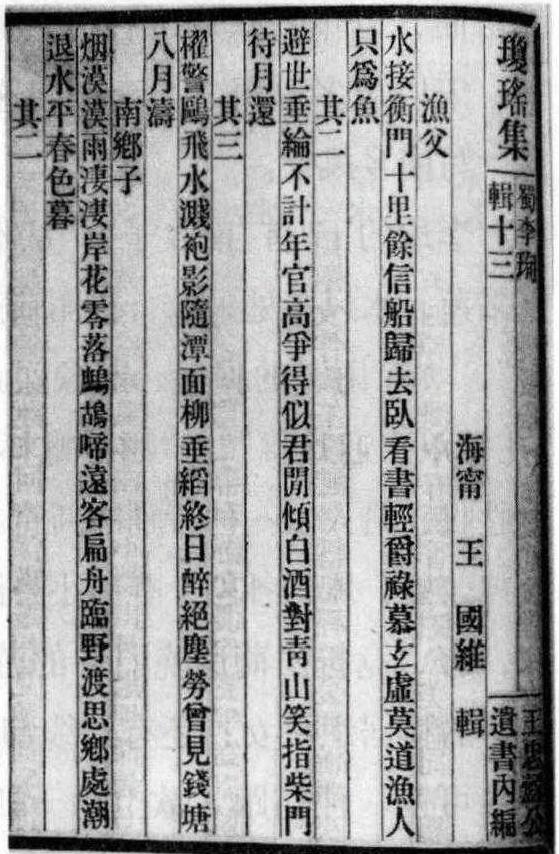 瓊瑤集
蜀李珣
輯十三
王忠慤公
遺書內編
海甯 王 國維 輯
漁父
水接衡門十里餘信船歸去臥看書輕爵祿慕玄虛莫道漁人
只爲魚
其二
避世垂綸不計年官高爭得似君閒傾白酒對靑山笑指柴門
待月還
其三
櫂警鷗飛水濺袍影隨潭面柳垂縚終日醉絕塵勞曾見錢塘
八月濤
南鄉子
烟漠漠雨淒淒岸花零落鷓鴣啼遠客扁舟臨野渡思鄉處潮
退水平春色暮
其二